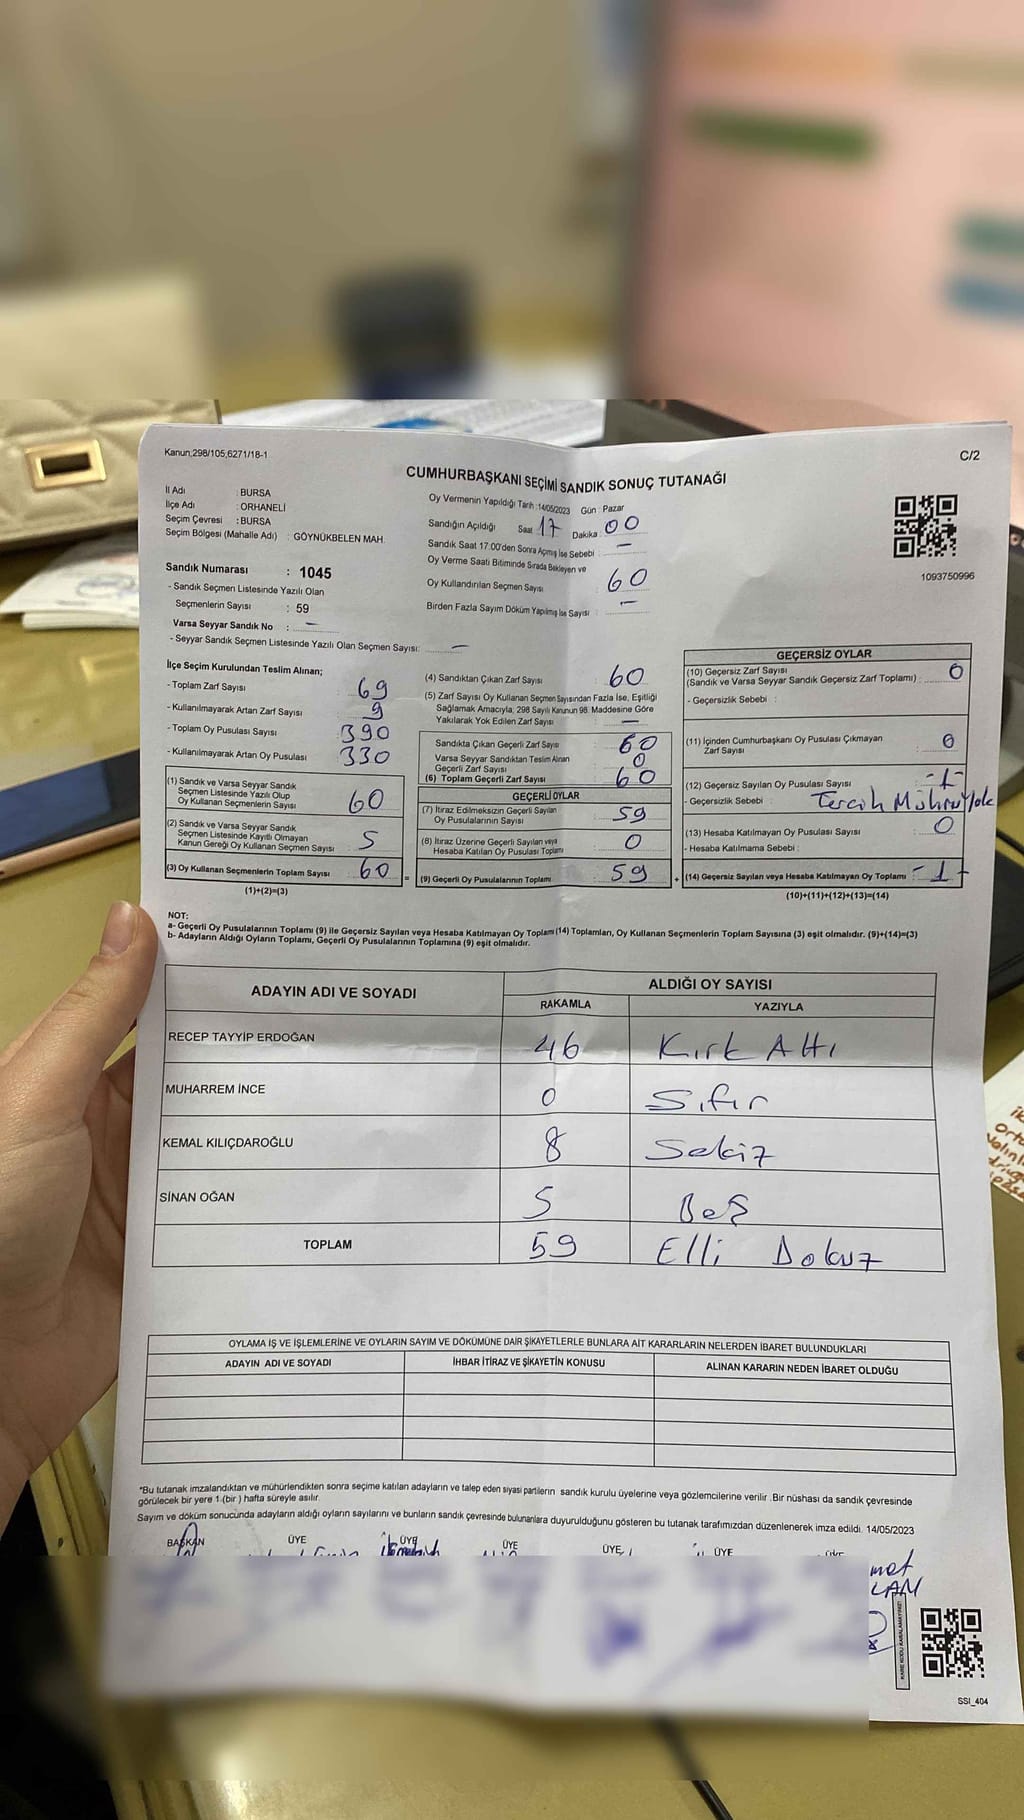 Kanun,298/105,6271/18-1
C/2
CUMHURBAŞKANI SEÇİMİ SANDIK SONUÇ TUTANAĞI
İl Adı : BURSA
İlçe Adı : ORHANELİ
Seçim Çevresi : BURSA
Seçim Bölgesi (Mahalle Adı) : GÖYNÜKBELEN MAH.
Sandık Numarası : 1045
- Sandık Seçmen Listesinde Yazılı Olan
Seçmenlerin Sayısı : 59
Varsa Seyyar Sandık No : –
- Seyyar Sandık Seçmen Listesinde Yazılı Olan Seçmen Sayısı: –
Oy Vermenin Yapıldığı Tarih :14/05/2023 Gün : Pazar
Sandığın Açıldığı Saat 17 Dakika : 00
Sandık Saat 17.00'den Sonra Açılmış İse Sebebi : –
Oy Verme Saati Bitiminde Sırada Bekleyen ve
Oy Kullandırılan Seçmen Sayısı 60
Birden Fazla Sayım Döküm Yapılmış İse Sayısı : –
1093750996
İlçe Seçim Kurulundan Teslim Alınan;
- Toplam Zarf Sayısı 69
- Kullanılmayarak Artan Zarf Sayısı 9
- Toplam Oy Pusulası Sayısı 390
- Kullanılmayarak Artan Oy Pusulası 330
(1) Sandık ve Varsa Seyyar Sandık
Seçmen Listesinde Yazılı Olup
Oy Kullanan Seçmenlerin Sayısı 60
(2) Sandık ve Varsa Seyyar Sandık
Seçmen Listesinde Kayıtlı Olmayan
Kanun Gereği Oy Kullanan Seçmen Sayısı 5
(3) Oy Kullanan Seçmenlerin Toplam Sayısı 60 =
(1)+(2)=(3)
(4) Sandıktan Çıkan Zarf Sayısı 60
(5) Zarf Sayısı Oy Kullanan Seçmen Sayısından Fazla İse, Eşitliği
Sağlamak Amacıyla, 298 Sayılı Kanunun 98. Maddesine Göre
Yakılarak Yok Edilen Zarf Sayısı –
Sandıkta Çıkan Geçerli Zarf Sayısı 60
Varsa Seyyar Sandıktan Teslim Alınan
Geçerli Zarf Sayısı 0
(6) Toplam Geçerli Zarf Sayısı 60
GEÇERLİ OYLAR
(7) İtiraz Edilmeksizin Geçerli Sayılan
Oy Pusulalarının Sayısı 59
(8) İtiraz Üzerine Geçerli Sayılan veya
Hesaba Katılan Oy Pusulası Toplamı 0
(9) Geçerli Oy Pusulalarının Toplamı 59 +
GEÇERSİZ OYLAR
(10) Geçersiz Zarf Sayısı
(Sandık ve Varsa Seyyar Sandık Geçersiz Zarf Toplamı) : 0
- Geçersizlik Sebebi :
(11) İçinden Cumhurbaşkanı Oy Pusulası Çıkmayan
Zarf Sayısı 0
(12) Geçersiz Sayılan Oy Pusulası Sayısı -1-
- Geçersizlik Sebebi : Tercih Mührü Yok
(13) Hesaba Katılmayan Oy Pusulası Sayısı 0
- Hesaba Katılmama Sebebi :
(14) Geçersiz Sayılan veya Hesaba Katılmayan Oy Toplamı -1-
(10)+(11)+(12)+(13)=(14)
NOT:
a- Geçerli Oy Pusulasının Toplamı (9) ile Geçersiz Sayılan veya Hesaba Katılmayan Oy Toplamı (14) Toplamları, Oy Kullanan Seçmenlerin Toplam Sayısına (3) eşit olmalıdır. (9)+(14)=(3)
b- Adayların Aldığı Oyların Toplamı, Geçerli Oy Pusulalarının Toplamına (9) eşit olmalıdır.
ADAYIN ADI VE SOYADI
ALDIĞI OY SAYISI
RAKAMLA YAZIYLA
RECEP TAYYİP ERDOĞAN 46 Kırk Altı
MUHARREM İNCE 0 Sıfır
KEMAL KILIÇDAROĞLU 8 Sekiz
SİNAN OĞAN 5 Beş
TOPLAM 59 Elli Dokuz
OYLAMA İŞ VE İŞLEMLERİNE VE OYLARIN SAYIM VE DÖKÜMÜNE DAİR ŞİKAYETLERLE BUNLARA AİT KARARLARIN NELERDEN İBARET BULUNDUKLARI
ADAYIN ADI VE SOYADI İHBAR İTİRAZ VE ŞİKAYETİN KONUSU ALINAN KARARIN NEDEN İBARET OLDUĞU
*Bu tutanak imzalandıktan ve mühürlendikten sonra seçime katılan adayların ve talep eden siyasi partilerin sandık kurulu üyelerine veya gözlemcilerine verilir .Bir nüshası da sandık çevresinde
görülecek bir yere 1 (bir ) hafta süreyle asılır.
Sayım ve döküm sonucunda adayların aldığı oyların sayılarını ve bunların sandık çevresinde bulunanlara duyurulduğunu gösteren bu tutanak tarafımızdan düzenlenerek imza edildi. 14/05/2023
BAŞKAN ÜYE ÜYE ÜYE ÜYE ÜYE ÜYE
SSI_404